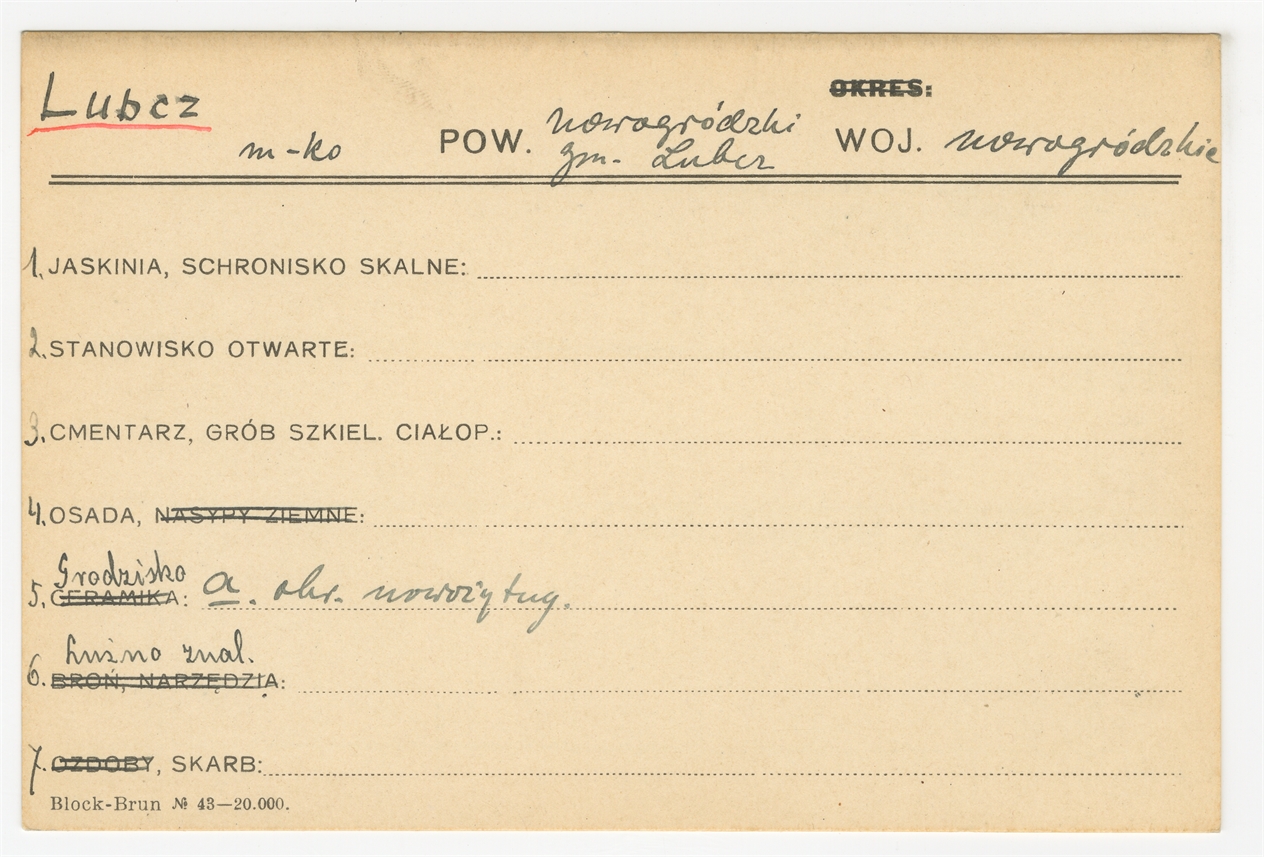 OKRES:
Lubcz
m-ko POW. nowogródzki WOJ. nowogródzkie
gm. Lubcz
1. JASKINIA, SCHRONISKO SKALNE:
2. STANOWISKO OTWARTE:
3. CMENTARZ, GRÓB SZKIEL. CIAŁOP.:
4. OSADA, NASYPY ZIEMNE:
Grodzisko
5. CERAMIKA: a. okr. nowożytny.
Luźno znal.
6. BROŃ, NARZĘDZIA:
7. OZDOBY, SKARB:
Block-Brun № 43—20.000.